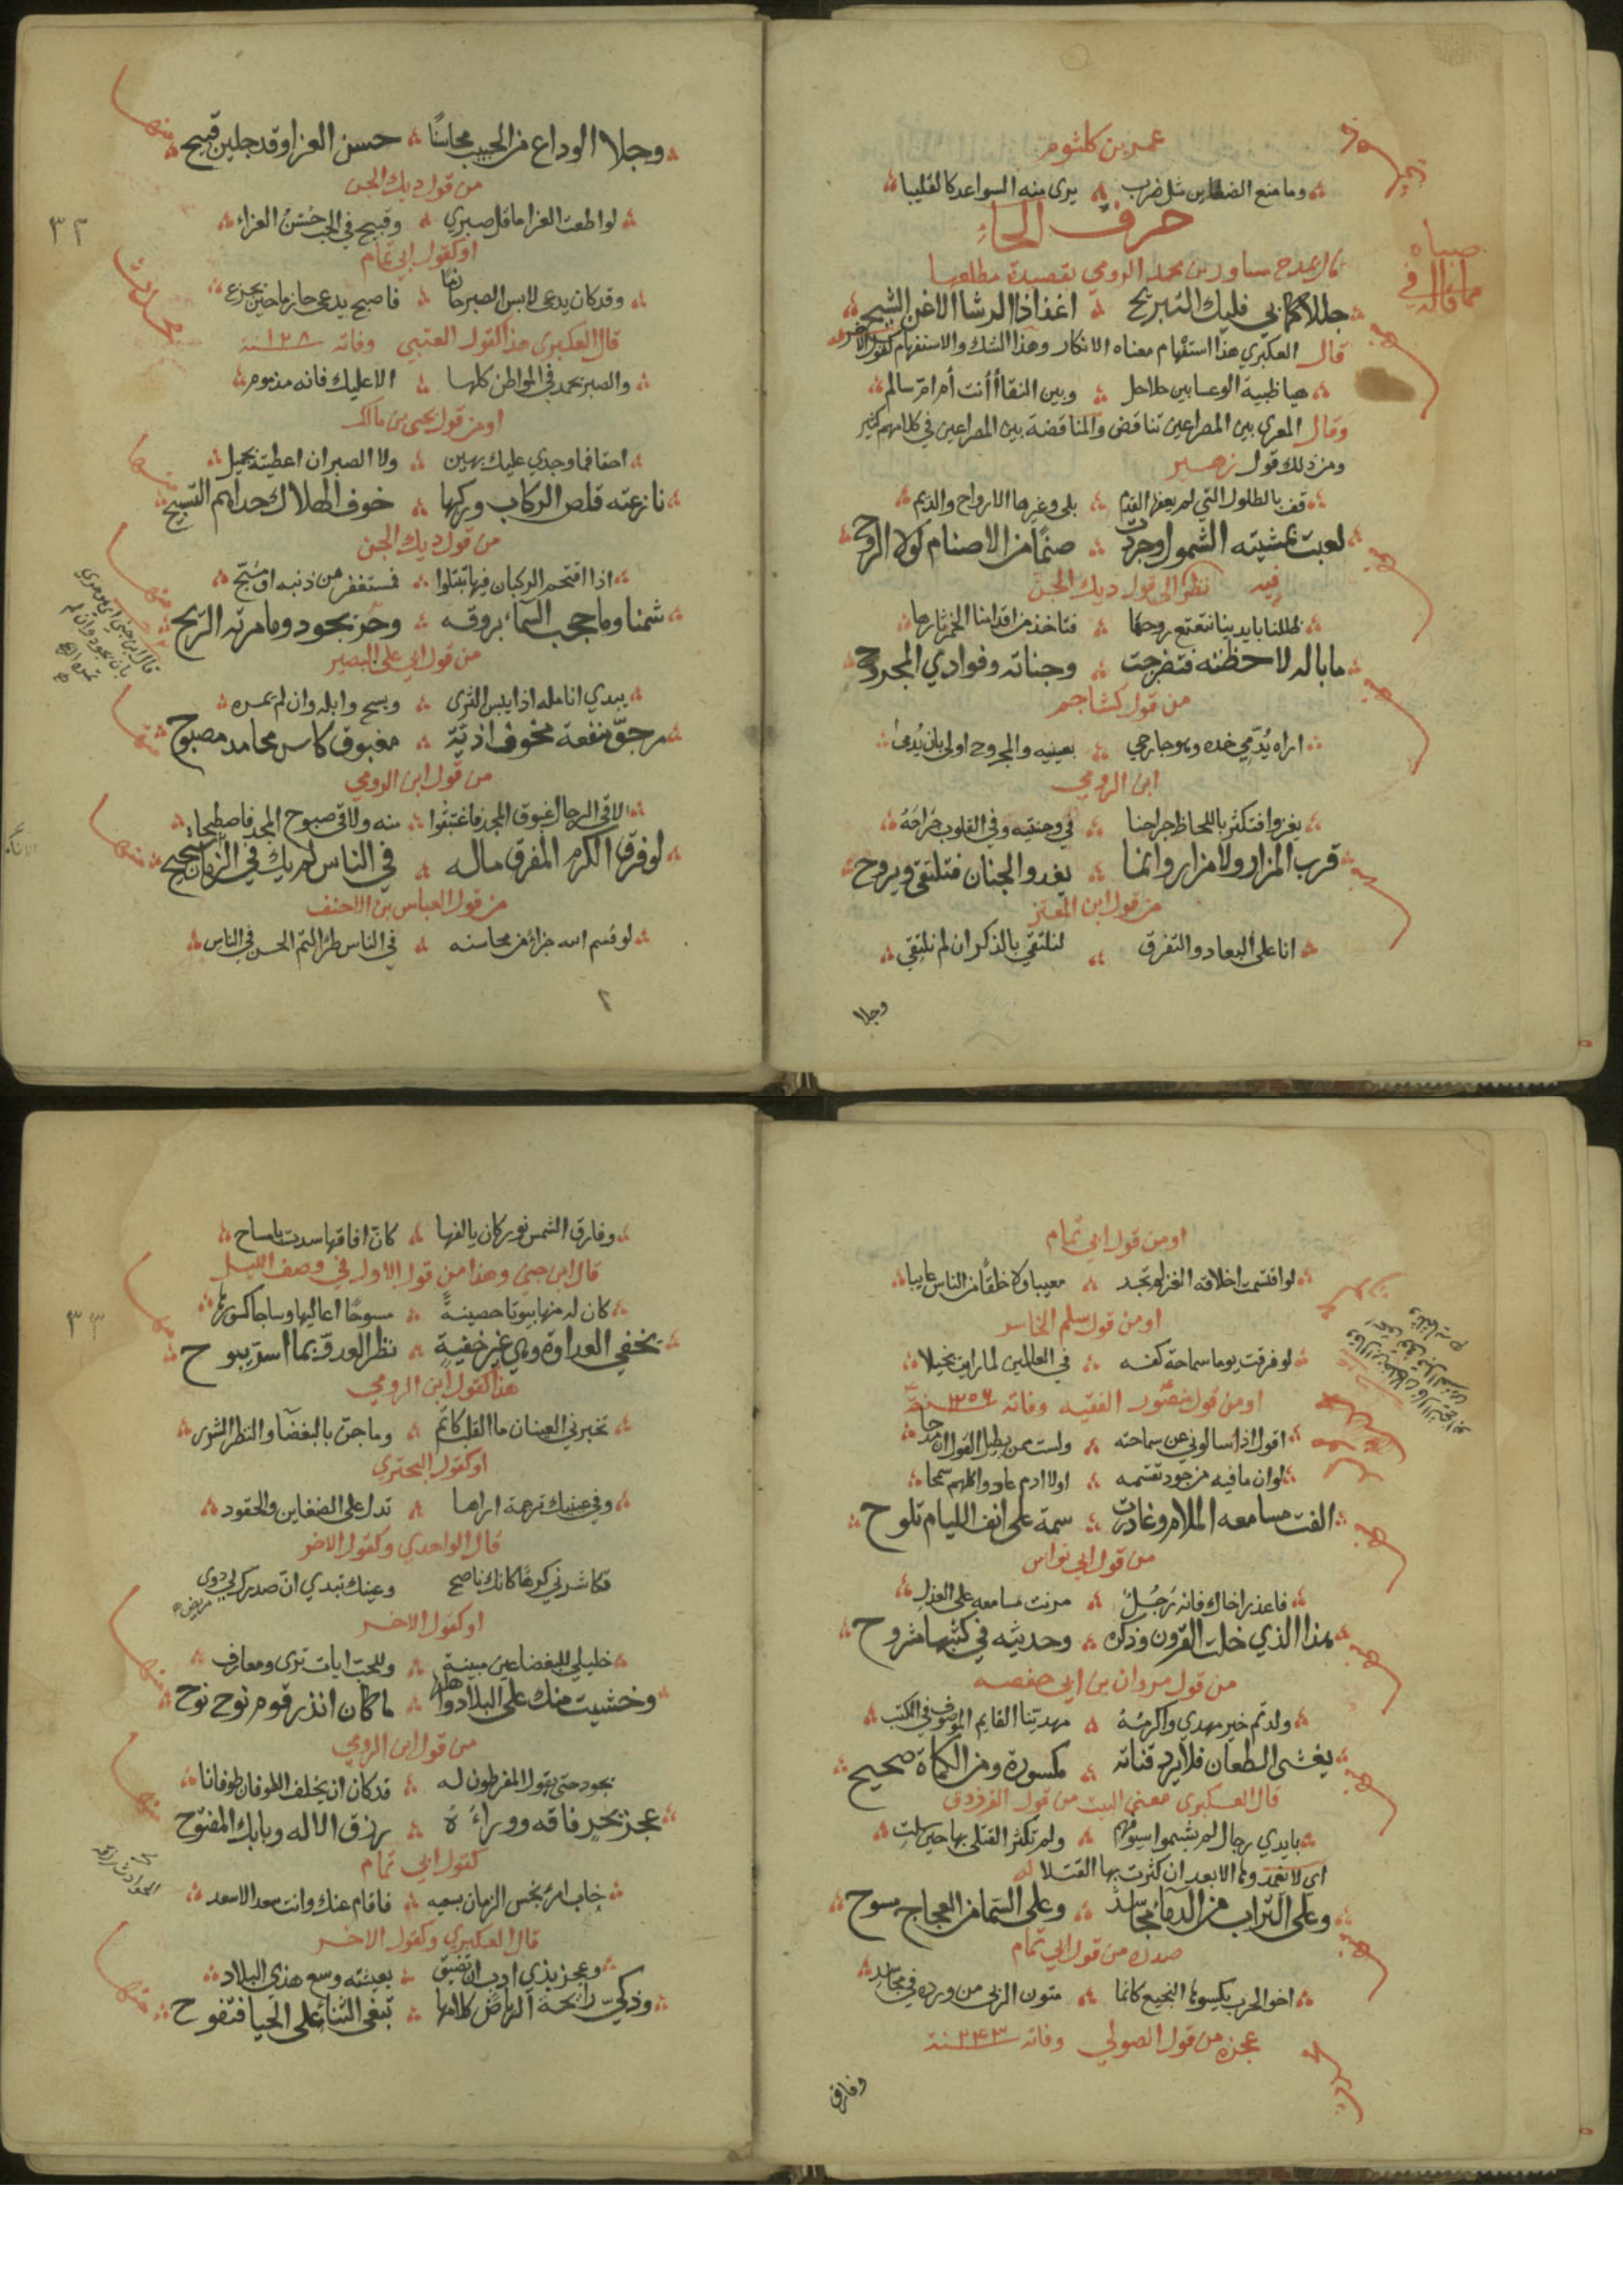 عمرو بن كلثوم
وما منع الضغاين مثل ضرب يرى منه السواعد كالقليبا
حرف الحاء
قال يمدح مساور بن محمد الرومي بقصيدة مطلعها
صباه مما قاله في
جللا كما بي فليك التبريح اغذاذا الرشا الاغن الشيح
قال العكبري هذا استفهام معناه الانكار وهذا الشك والاستفهام كقول الاخر
هيا ظبية الوعسا بين حلاحل وبين النقا أأنت أم ام سالم
وقال المعري بين المصراعين تناقض والمناقضة بين المصراعين في كلامهم كثير
ومن ذلك قول زهير
قف بالطلول التي لم يعفها القدم بلى وغيرها الارواح والديم
لعبت بمشيته الشمول وجردت صنما من الاصنام لولا الروح
فيه نظر الى قول ديك الجن
ظللنا بايدينا نتعتع روحها فتاخذ من اقدامنا الخمر ثارها
ما باله لاحظته فتضرجت وجناته وفوادي المجروح
من قول كشاجم
اراه يدمي خده وهو جارحي بعينيه والمجروح اولى بان يدمى
ابن الرومي
يغزوا فتكثر باللحاظ جراحنا في وجنتيه وفي القلوب جراحه
قرب المزار ولا مزار وانما يغدو الجنان فنلتقي ويروح
من قول ابن المعتز
انا على البعاد والتفرق لنلتقي بالذكر ان لم نلتقي
وجلا
وجلا الوداع من الحبيب محاسنا حسن العزا وقد جلين قبيح
منها
من قول ديك الجن
لو اطعت العزا ما قل صبري وقبيح في الحب حسن العزاء
٣٢
او كقول ابي تمام
وقد كان يدعى لابس الصبر حازما فاصبح يدعى حازما حين يجزع
قال العكبري هذا كقول العتبي وفاته ١٢٨ سنة
والصبر يحمد في المواطن كلها الا عليك فانه مذموم
او من قول يحيى بن مالك
احقا فما وجدي عليك بهين ولا الصبر ان اعطيته بجميل
نازعته قلص الركاب وركبها خوف الهلاك حداهم التسبيح
من قول ديك الجن
اذا اقتحم الركبان فيها تبتلوا فمستغفر من ذنبه او مسبح
شمنا وما حجب السماء بروقه وحر يجود وما مرته الريح
من قول ابي علي البصير
يبدي انامله اذا يبس الثرى ويسح وابله وان لم تمره
مرجو منفعة مخوف اذية مغبوق كاس محامد مصبوح
من قول ابن الرومي
لاقى الرجال غبوق المجد فاغتبقوا منه ولاقى صبوح المجد فاصطبحا
لو فرق الكرم المفرق ماله في الناس لم يك في الزمان شحيح
من قول العباس بن الاحنف
لو قسم الله جزءا من محاسنه في الناس طرا لتم الحسن في الناس
او من قول ابي تمام
لو اقتسمت اخلاقه الغر لم تجد معيبا ولا خلقا من الناس عايبا
او من قول سلم الخاسر
لو فرقت يوما سماحة كفه في العالمين لما راين بخيلا
او من قول منصور الفقيه وفاته ٣٥٦ سنة
اقول اذا سالوني عن سماحته ولست ممن يطيل القول ان مدحا
لو ان ما فيه من جود تقسمه اولاد ادم عادوا كلهم سمحا
الفت مسامعه الملام وغادرت سمة على انف الليام تلوح
من قول ابي نواس
فاعذر اخاك فانه رجل مرنت مسامعه على العذل
هذا الذي خلت القرون وذكره وحديثه في كتبها مشروح
من قول مروان بن ابي حفصه
ولدتم خير مهدي واكرمه مهدينا القايم الموصوف في الكتب
يغشى الطعان فلا يرد قناته مكسورة ومن الكماة صحيح
قال العكبري معنى البيت من قول الفرزدق
بايدي رجال لم يشيموا سيوفهم ولم تكثر القتلى بها حين سلت
اي لا تغمد وها الا بعد ان كثرت بها القتلا
وعلى التراب من الدماء مجاسد وعلى السما من العجاج مسوح
صدره من قول ابي تمام
اخو الحرب يكسوها النجيع كانما متون الربى من ورده في مجاسد
عجزه من قول الصولي وفاته ٢٤٣ سنة
وفارق
وفارق الشمس نور كان يالفها كان افاقها سدت بامساح
قال ابن جني وهذا من قول الاول في وصف الليل
كان له منها بيوتا حصينة مسوحا اعاليها وساجا كسورها
٣٣
يخفي العداوة وهي غير خفية نظر العدو بما اسر يبوح
هذا كقول ابن الرومي
تخبرني العينان ما القلب كاتم وما جن بالبغضاء والنظر الشزر
او كقول البحتري
وفي عينيك ترجمة اراها تدل على الضغاين والحقود
قال الواحدي وكقول الاخر
تكاشرني كرها كانك ناصح وعينك تبدي ان صدرك لي دوى
او كقول الاخر
خليلي للبغضا عين مبينة وللحب ايات ترى ومعارف
وخشيت منك على البلاد واهلها ما كان انذر قوم نوح نوح
من قول ابن الرومي
يجود حتى يقول المفرطون له قد كان ان يخلف الطوفان طوفانا
عجز بحر فاقه ووراءه رزق الاله وبابك المفتوح
كقول ابي تمام
خاب امرؤ بخس الزمان بسعيه فاقام عنك وانت سعد الاسعد
قال العكبري وكقول الاخر
وعجز بذي ادب ان تضيق بعيشته وسع هذي البلاد
وذكي رائحة الرياض كلامها تبغي الثناء على الحيا فتفوح
منها